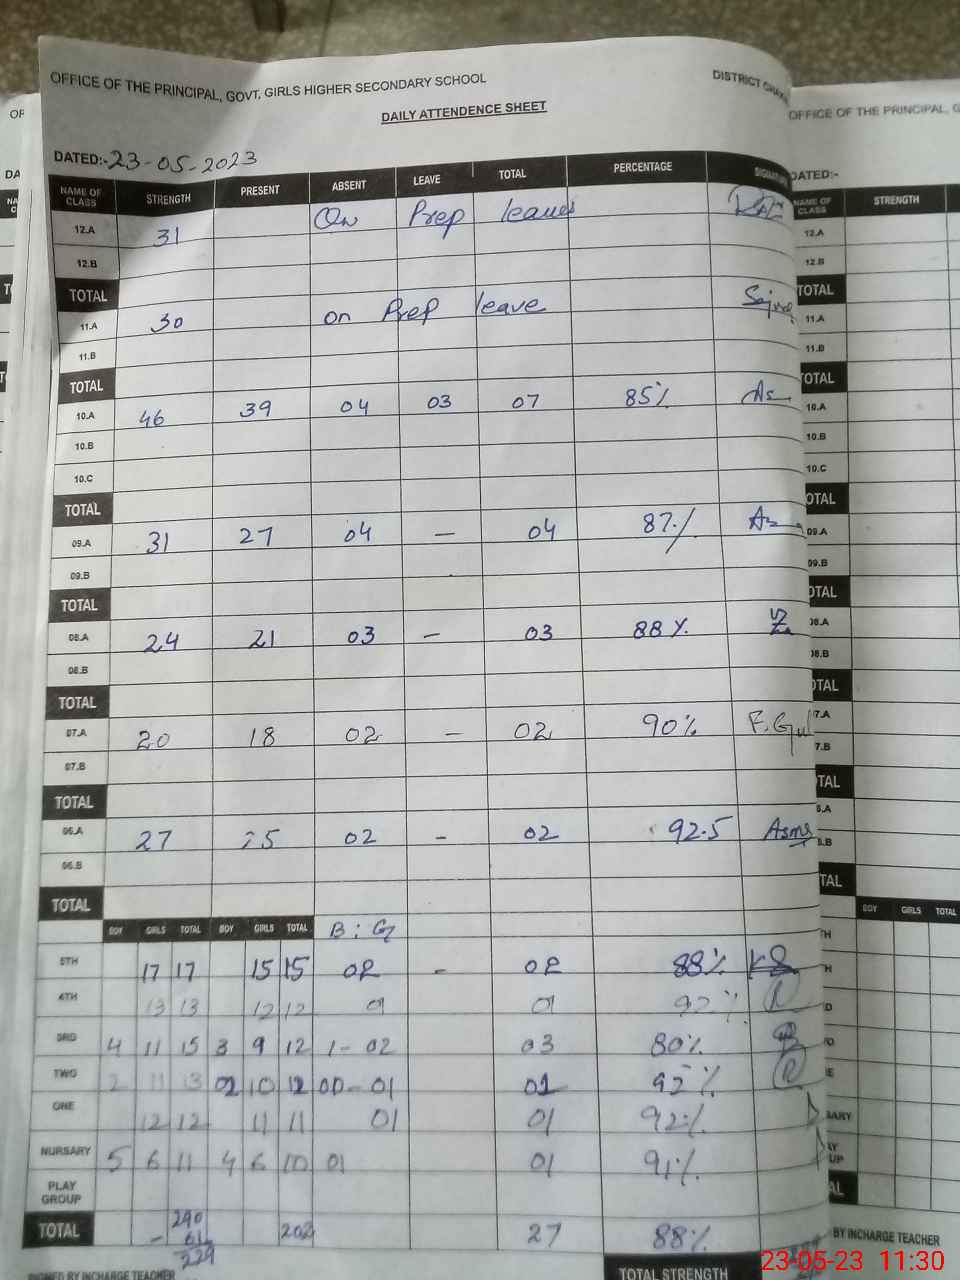 OFFICE OF THE PRINCIPAL, GOVT. GIRLS HIGHER SECONDARY SCHOOL DISTRICT
DAILY ATTENDENCE SHEET
DATED:-23-05-2023
NAME OF CLASS STRENGTH PRESENT ABSENT LEAVE TOTAL PERCENTAGE
12.A 31 On Prep leaves
12.B
TOTAL
11.A 30 on Prep leave
11.B
TOTAL
10.A 46 39 04 03 07 85%
10.B
10.C
TOTAL
09.A 31 27 04 — 04 87%
09.B
TOTAL
08.A 24 21 03 — 03 88%
08.B
TOTAL
07.A 20 18 02 — 02 90% F. Gul
07.B
TOTAL
06.A 27 25 02 - 02 92.5 Asma
06.B
TOTAL
BOY GIRLS TOTAL BOY GIRLS TOTAL B : G
5TH 17 17 15 15 02 - 02 88%
4TH 13 13 12 12 01 01 92%
3RD 4 11 15 3 9 12 1-02 03 80%
TWO 2 11 13 02 10 12 00-01 01 92%
ONE 12 12 11 11 01 01 92%
NURSARY 5 6 11 4 6 10 01 01 91%
PLAY GROUP
TOTAL 290 202 27 88%
- 61
229
SIGNED BY INCHARGE TEACHER
TOTAL STRENGTH
OFFICE OF THE PRINCIPAL, G
DATED:-
NAME OF CLASS STRENGTH
12.A
12.B
TOTAL
11.A
11.B
TOTAL
10.A
10.B
10.C
OTAL
09.A
09.B
OTAL
08.A
08.B
OTAL
07.A
7.B
TAL
6.A
6.B
TAL
BOY GIRLS TOTAL
BY INCHARGE TEACHER
23-05-23 11:30